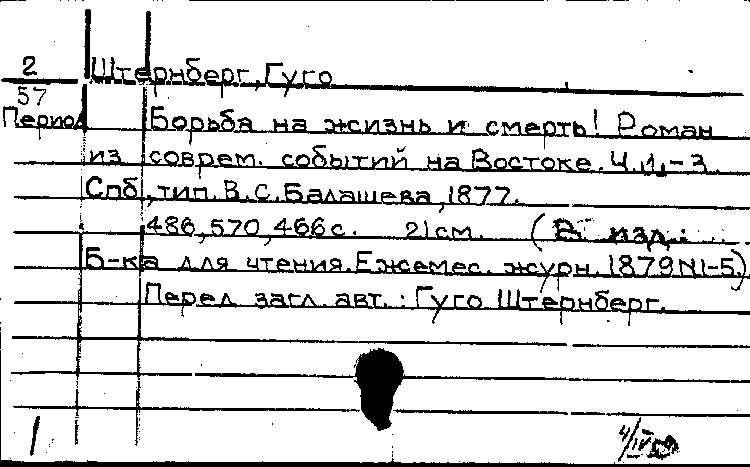 2 Штернберг, Гуго
57
Период Борьба на жизнь и смерть! Роман
из соврем. событий на Востоке. Ч. 1-3.
Спб, тип. В.С. Балашева, 1877.
486, 570, 466 с. 21 см. (В изд.:
Б-ка для чтения. Ежемес. журн. 1879 N1-5.)
Перед загл. авт.: Гуго Штернберг.